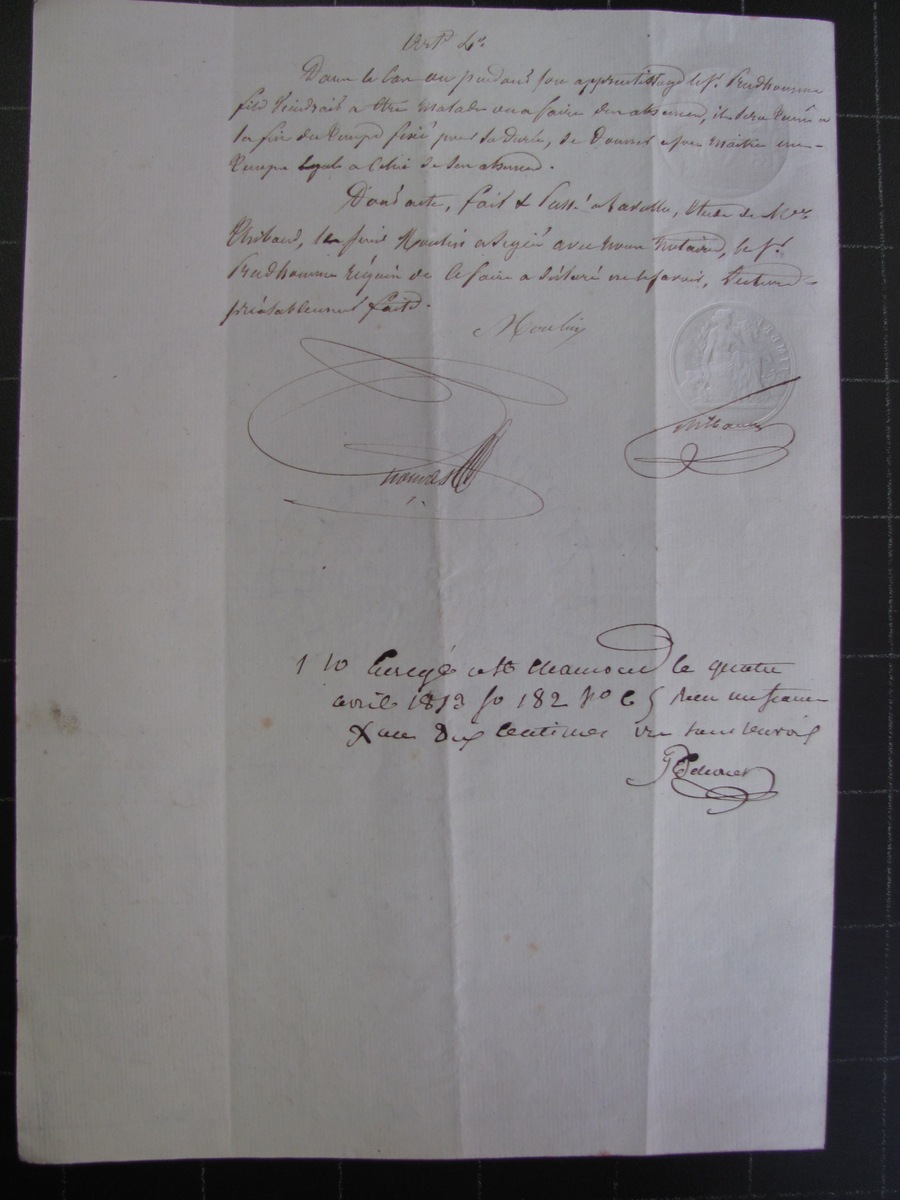 Art. 4e.
Dans le Cas ou pendant son apprentissage le Sr. Prudhomme
fils Viendrait a Etre Malade ou a faire des absences, il sera tenu a
la fin du Temps fixé pour sa durée, de Donner a son Maitre un
Temps Egal a Celui de Ses absences.
Dont acte, fait & Passé a farolle, Etude de Me
Thibaud, le Sieur Moulin a Signé avec nous Notaire, le Sr.
Prudhomme réquis de le faire a déclaré ne le savoir, Lecture
préalablement faite.
Moulin
Thibaud
1 10 Enregé a St Chamond le quatre
avril 1813 fo 182 Vo C 5 Recu un franc
& un Dix Centimes